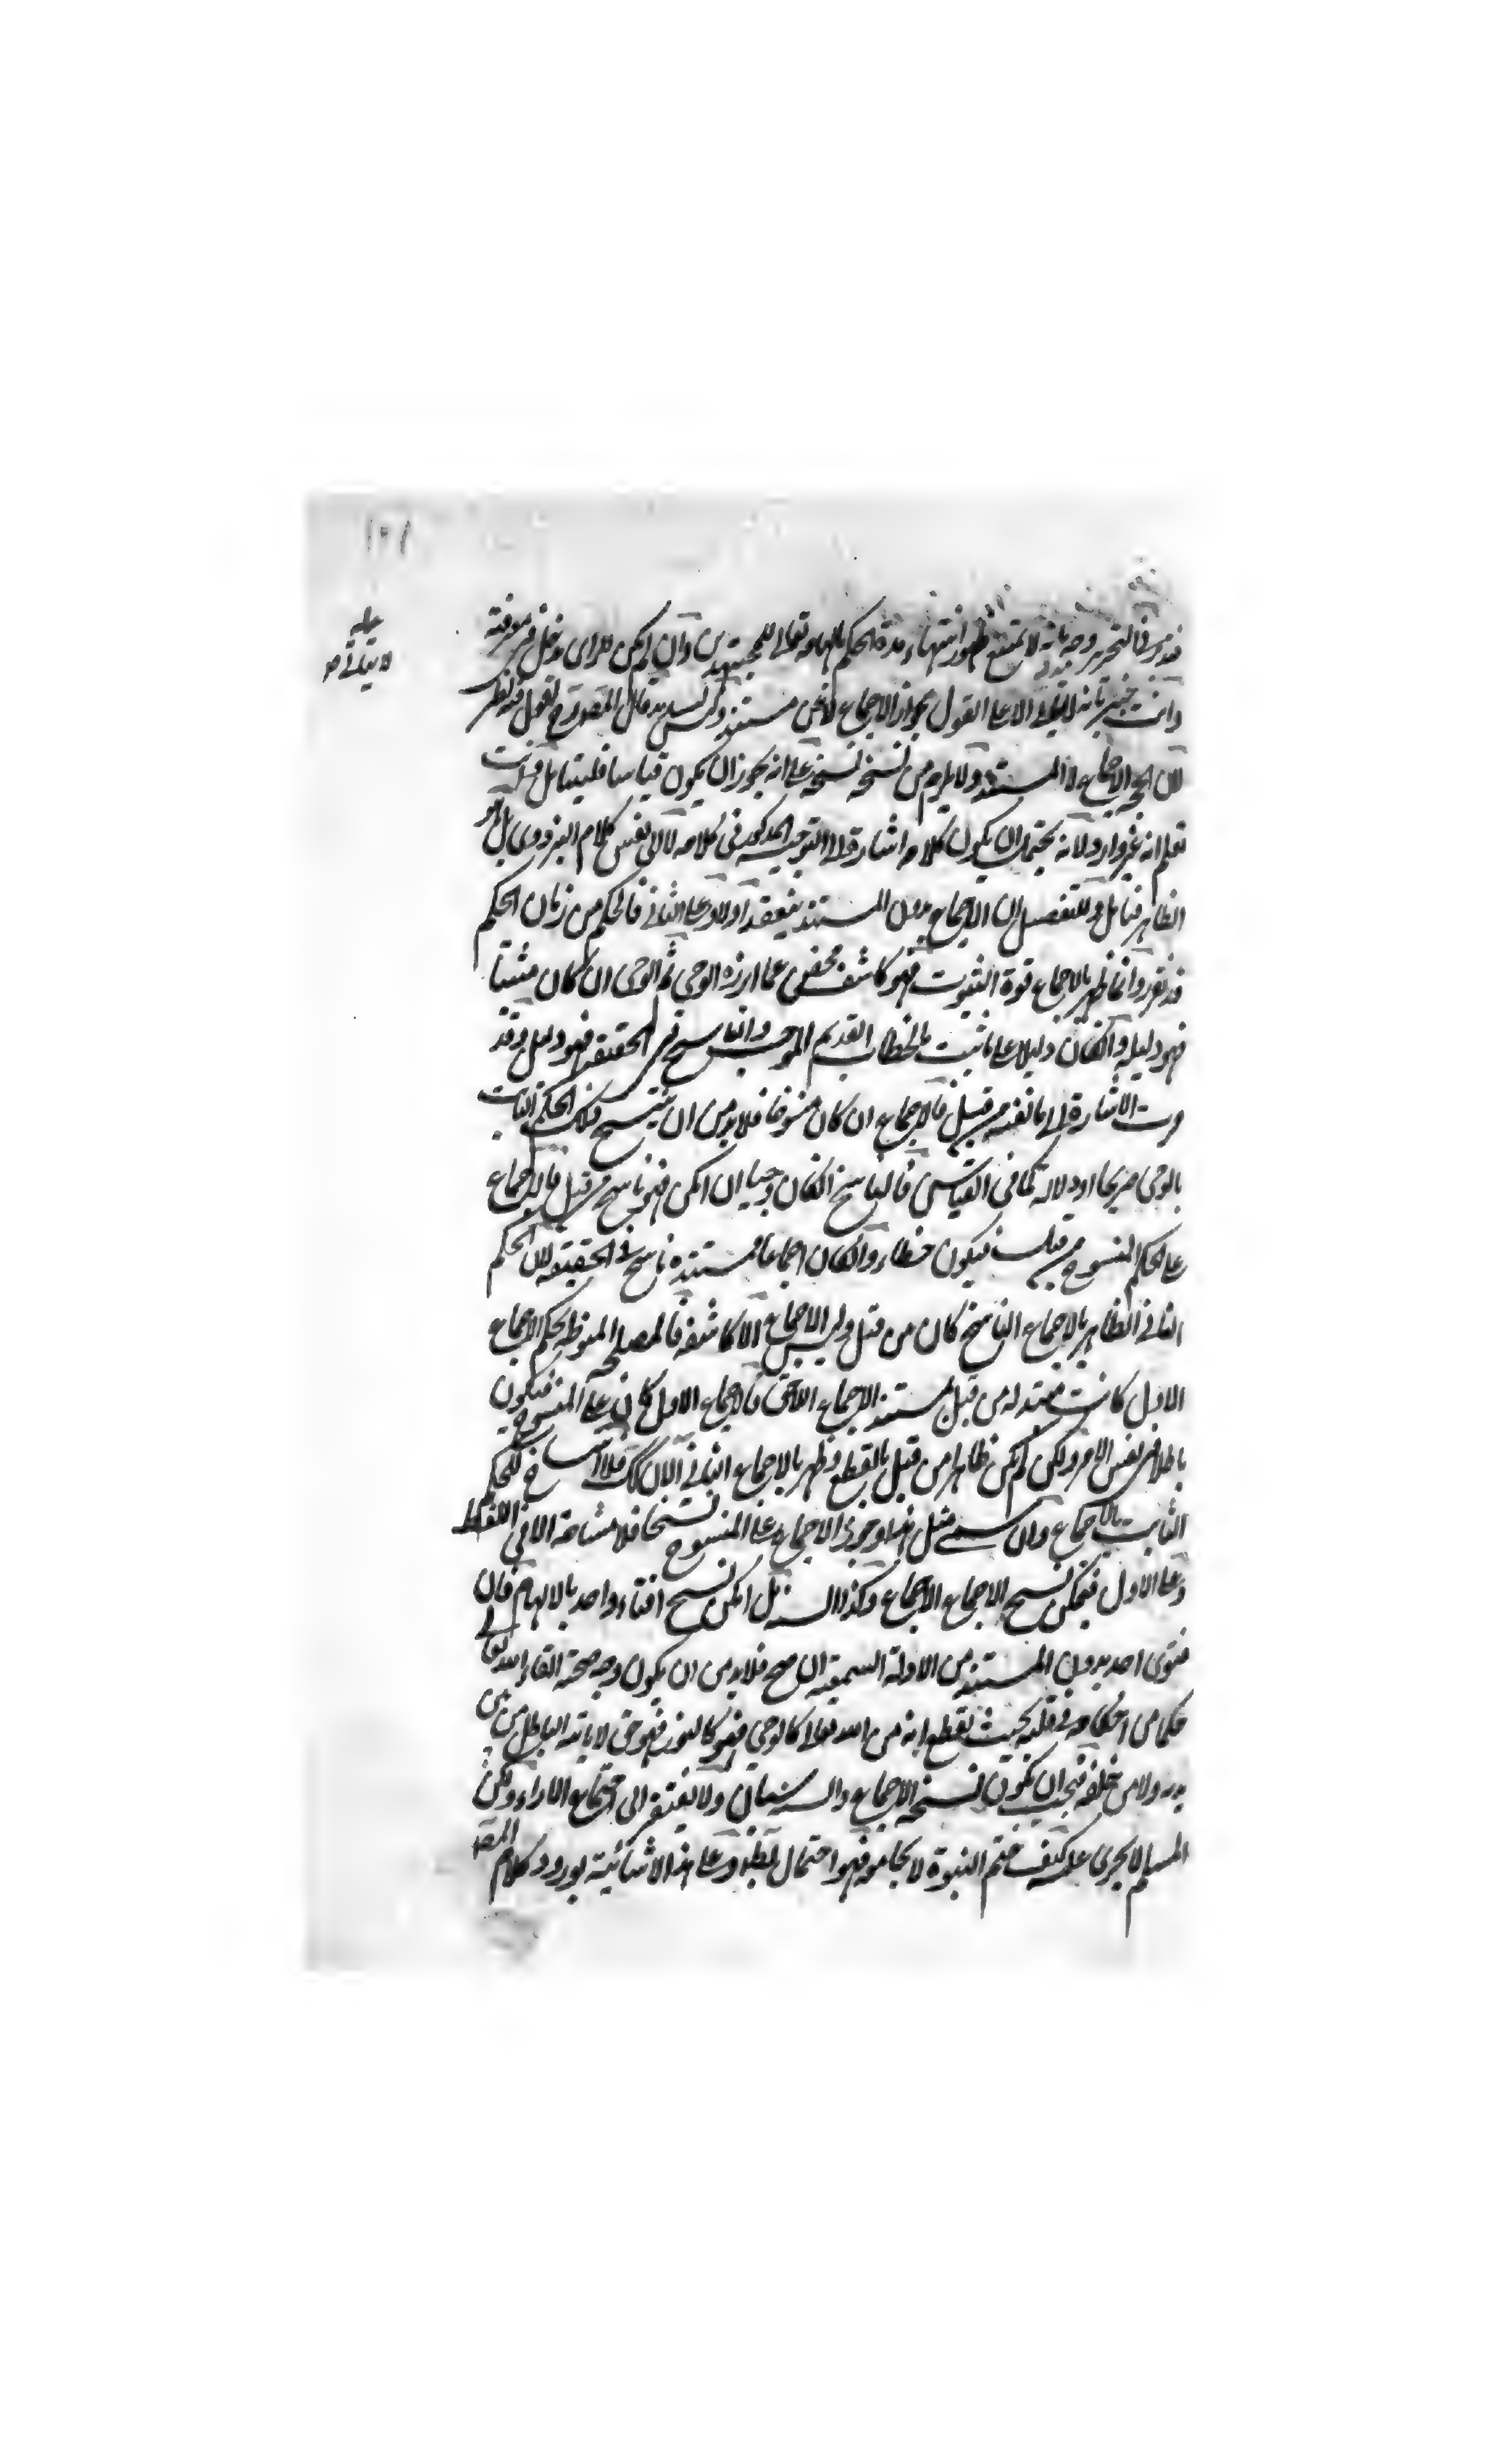 ١٠١
قد مر في التحرير وجه بانه لا يمتنع ظهور انتهاء مدة الحكم بالهامه تعالى للمجتهدين وان لم يكن للراى دخل في معرفته
لا يتاتى صـ
وانت خبير بانه لا الا على القول بجواز الاجماع لا عن مستند وليس بسديد قال المصنف اقول فيه نظر
لان الحجة الاجماع لا المستند ولا يلزم من نسخه نسخه على انه يجوز ان يكون قياسا فليتامل
تعلم انه غير وارد لانه يحتمل ان يكون كلامه اشارة الى التوجيه المذكور في كلامه لا الى نفس كلام البزدوى بل هو
الظاهر فتامل والتفصيل ان الاجماع بدون المستند ينعقد اولا وعلى الثانى فالحكم من زمان الحكم
قد تقرر وانما ظهر بالاجماع قوة الثبوت فهو كاشف محض عما ابرزه الوحى ثم الوحى ان كان مثبتا
فهو دليله وان كان دليلا على ما ثبت بالخطاب القديم الموجب والناسخ في الحقيقة فهو دليل وقد
مرت الاشارة الى ما نفيه من قبل فالاجماع ان كان منسوخا فلا بد من ان ينتسخ ذلك الحكم الثابت
بالوحى صريحا او دلالة كما في القياس فالناسخ ان كان وحيا ان امكن فهو ناسخ من قبل فالاجماع
على الحكم المنسوخ من قبل فيكون خطاء وان كان اجماعا فمستنده ناسخ في الحقيقة لان الحكم
الثانى الظاهر بالاجماع الناسخ كان من قبل وليس الاجماع الا كاشفه فالمصلحة المنوط لحكم الاجماع
الاول كانت متبدله من قبل مستند الاجماع اللاحق فالاجماع الاول كان على المنسوخ فيكون
باطلا في نفس الامر ولكن لم يكن ظاهرا من قبل بالقطع وظهر بالاجماع الثانى الان كذلك فلا انتساخ للحكم
الثابت بالاجماع وان سمى مثل هذا وجوز الاجماع على المنسوخ نسخا فلا مشاحة الا في اللفظ
وعلى الاول فيمكن نسخ الاجماع الاجماع وكذا السنة بل امكن نسخ افتاء واحد بالالهام فان
فتوى احد بدون المستند من الادلة السمعية ان صح فلا بد من ان يكون وجه صحته القاء الله تعالى
حكما من احكامه في قلبه بحيث يقطع انه من الله تعالى كالوحى فهو كالنور فهو حق لا ياتيه الباطل من بين
يديه ولا من خلفه فيجب ان يكون نسخه الاجماع والسنة سيان ولا يفتقر الى اجتماع الاراء ولكن
المسلم لا يجرى عليه كيف ختم النبوة لا يجامعه فهو احتمال وعلى هذا لا شائبة لورود كلام المصنف